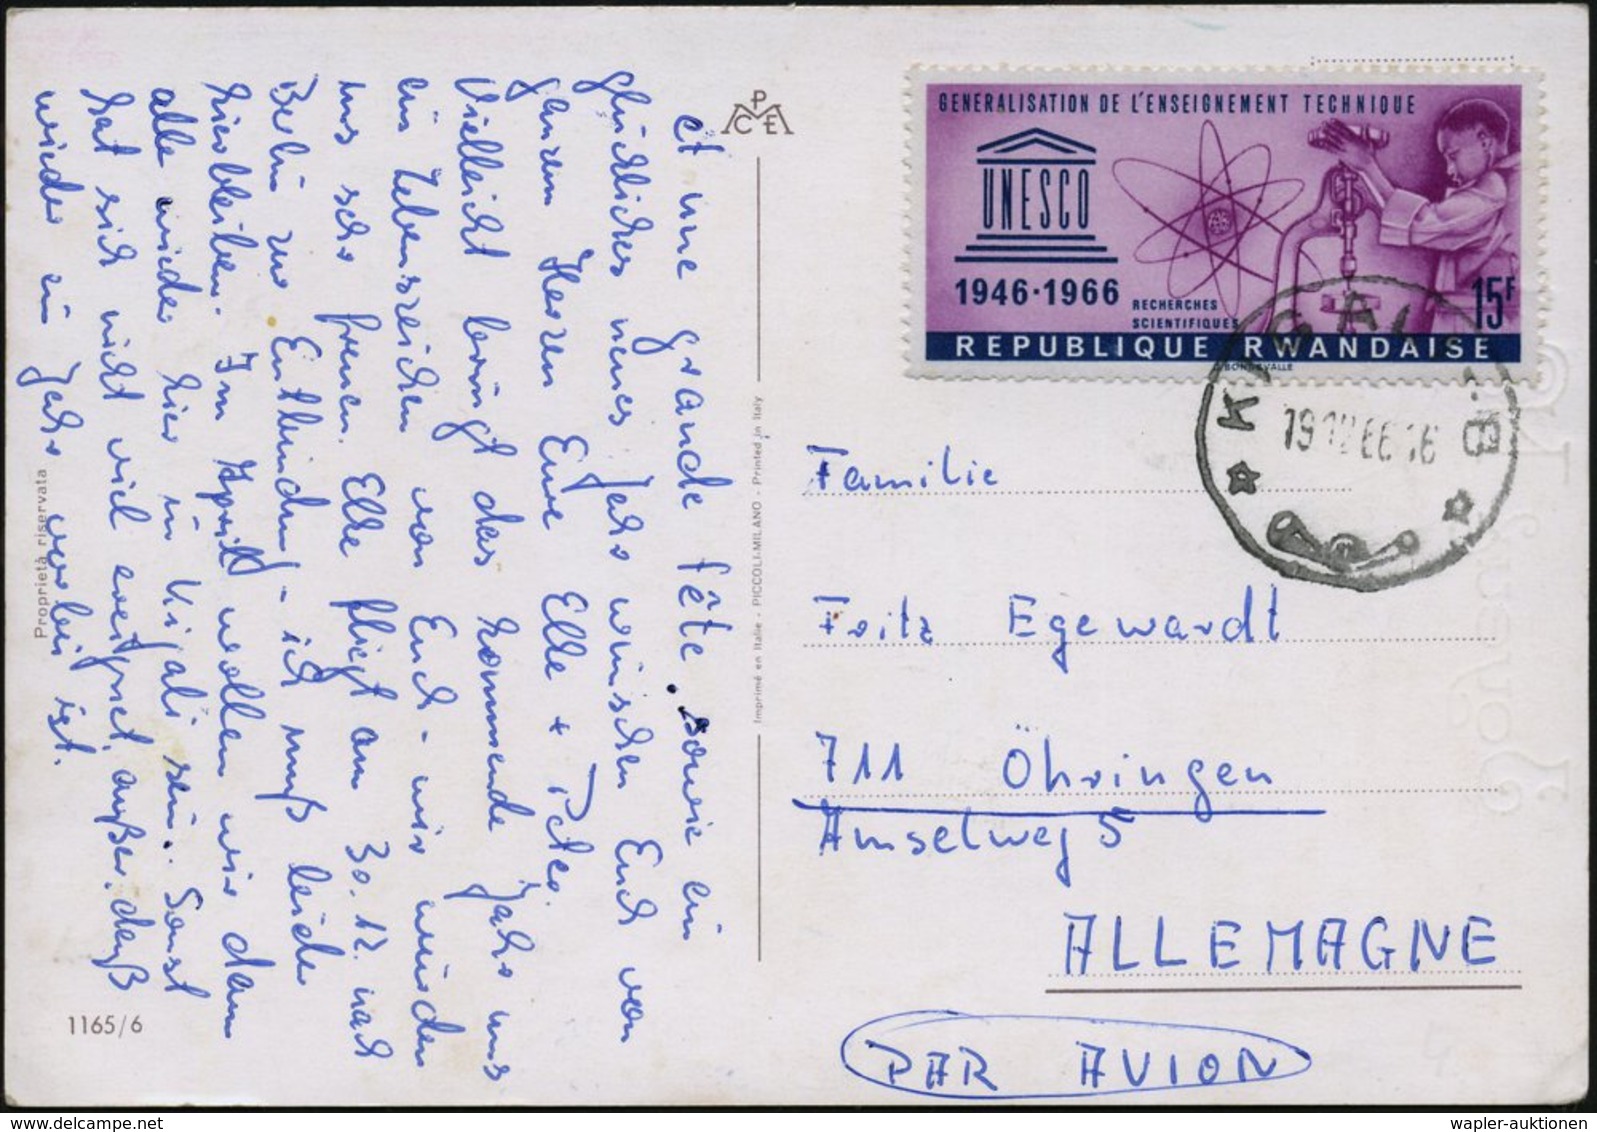 et une grande fête. sowie ein
glückliches neues Jahr wünschen Euch von
ganzem Herzen Eure Elke + Peter.
Vielleicht bringt das kommende Jahr uns
ein Lebenszeichen von Euch - wir würden
uns sehr freuen. Elke fliegt am 30.12. nach
Berlin zur Entbindung - ich muß leider
hierbleiben. Im April wollen wir dann
alle wieder hier in Kigali sein. Sonst
hat sich nicht viel ereignet, außer, daß
wieder ein Jahr vorbei ist.
PMCE
Proprietà riservata
1165/6
Imprimé en Italie - PICCOLI-MILANO - Printed in Italy
GENERALISATION DE L'ENSEIGNEMENT TECHNIQUE
UNESCO
1946·1966
RECHERCHES
SCIENTIFIQUES
15F
REPUBLIQUE RWANDAISE
KIGALI B
19 12 66 16
Familie
Fritz Egewardt
711 Öhringen
Amselweg 5
ALLEMAGNE
PAR AVION
wapler-auktionen